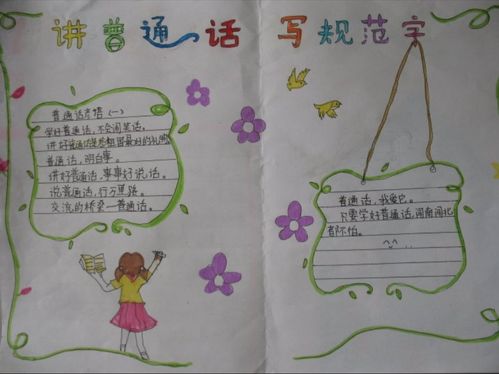 讲普通话 写规范字
普通话谚语（一）
学好普通话，不会闹笑话。
普通话，明白事。
讲好普通话，事事好说话。
说普通话，行万里路。
交流的桥梁—普通话。
普通话，我爱它。
只要学好普通话，闽南闽北
都不怕。